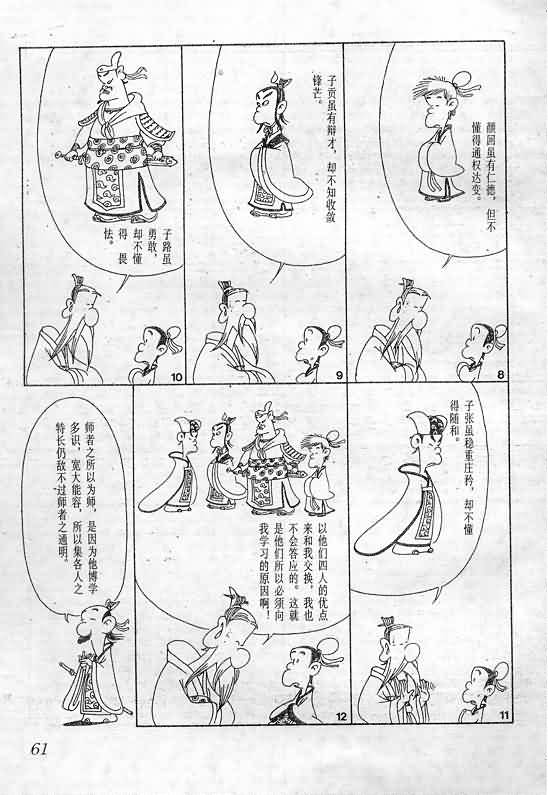 颜回虽有仁德，但不
懂得通权达变。
8
子贡虽有辩才，却不知收敛
锋芒。
9
子路虽
勇敢，
却不懂
得畏
怯。
10
子张虽稳重庄矜，却不懂
得随和。
11
以他们四人的优点
来和我交换，我也
不会答应的。这就
是他们所以必须向
我学习的原因啊！
12
师者之所以为师，是因为他博学
多识，宽大能容，所以集各人之
特长仍敌不过师者之通明。
61